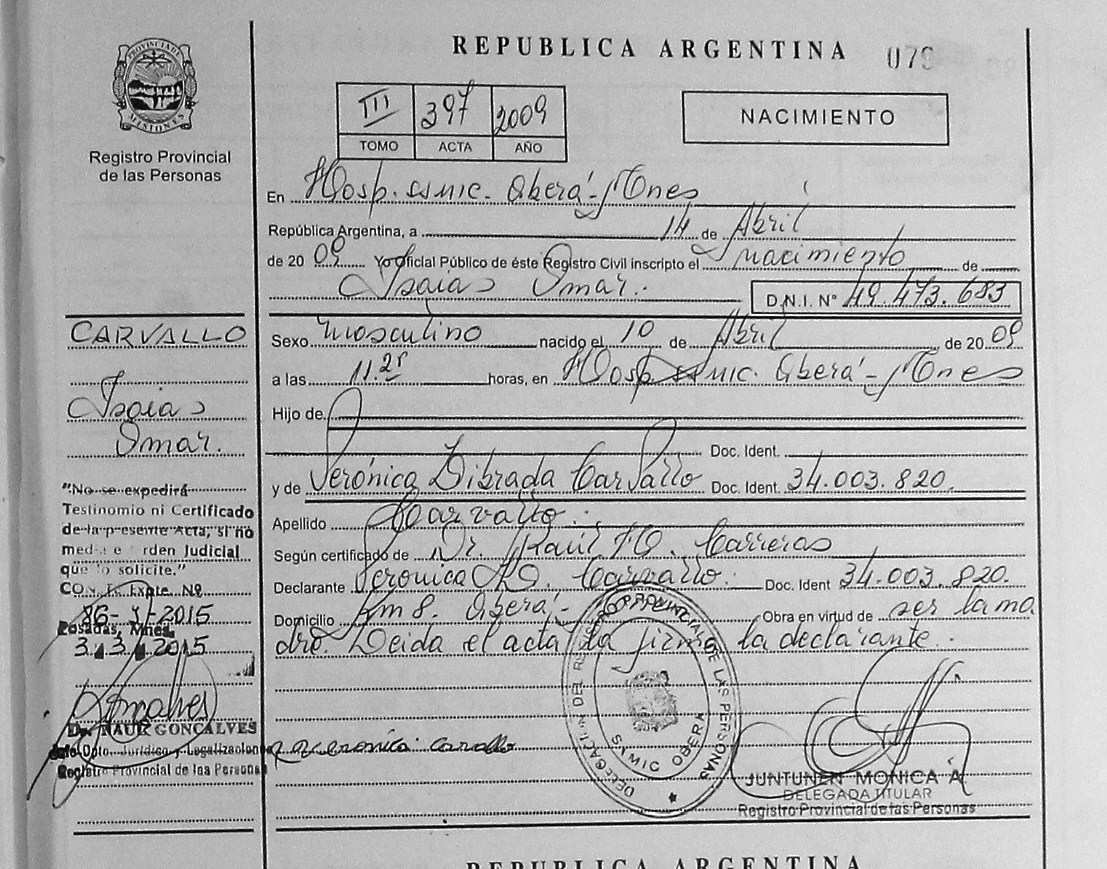 REPUBLICA ARGENTINA
079
PROVINCIA DE
MISIONES
Registro Provincial
de las Personas
III 397 2009
TOMO ACTA AÑO
NACIMIENTO
En Hosp. SAMIC. Oberá - Mnes
República Argentina, a 14 de Abril
de 2009 Yo Oficial Público de éste Registro Civil inscripto el nacimiento de
Isaias Omar.
D.N.I. Nº 49.473.683
CARVALLO
Isaias
Omar.
Sexo masculino nacido el 10 de Abril de 2009
a las horas, en Hosp. SAMIC. Oberá - Mnes
Hijo de
Doc. Ident.
y de Verónica Librada Carvallo Doc. Ident. 34.003.820.
Apellido Carvallo.
Según certificado de Dr. Raúl Carreras
Declarante Verónica Carvallo. Doc. Ident 34.003.820.
Domicilio Km 8. Oberá - Obra en virtud de ser la ma
dre. Leida el acta la firma la declarante.
"No se expedirá
Testimonio ni Certificado
de la presente Acta, si no
media orden Judicial
que lo solicite."
Expte. Nº
2015
Posadas, Mnes.
3.3.2015
Dr. RAUL GONÇALVES
Jefe Dpto. Jurídico y Legalizacion
Registro Provincial de las Personas
Veronica Carvallo
DELEGACION DEL REGISTRO PROVINCIAL DE LAS PERSONAS
SAMIC OBERA
JUNTUNEN MONICA A.
DELEGADA TITULAR
Registro Provincial de las Personas
REPUBLICA ARGENTINA